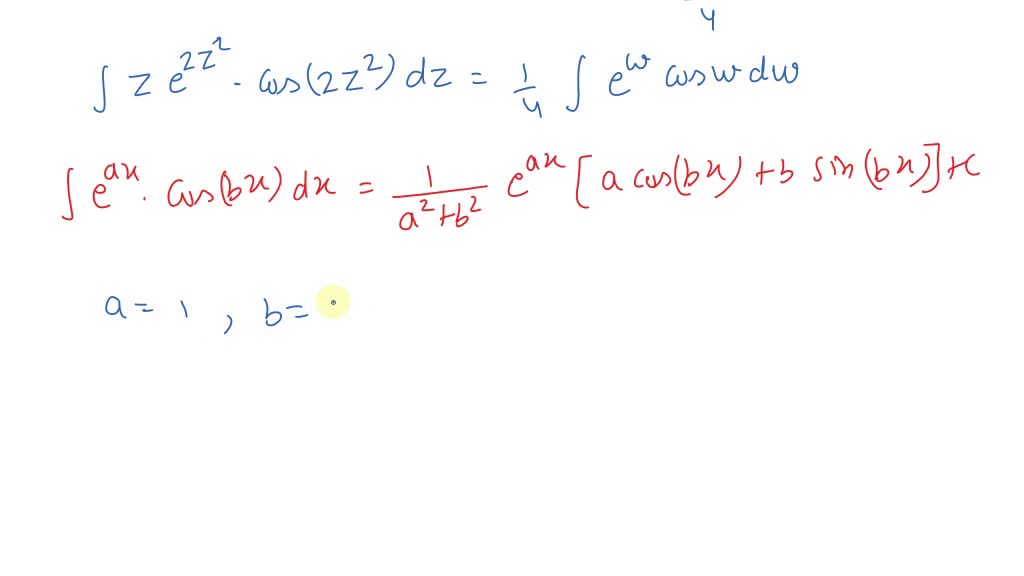 4
∫ z e^{2z^2} · cos(2z^2) dz = 1/4 ∫ e^w cos w dw
∫ e^{ax} · cos(bx) dx = 1/(a^2+b^2) e^{ax} [a cos(bx) + b sin(bx)] + c
a = 1 , b =